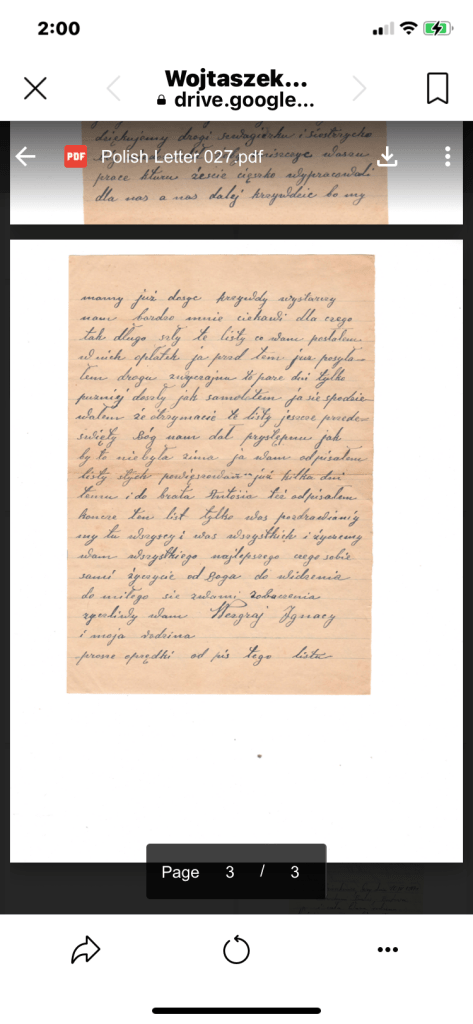 2:00
Wojtaszek...
drive.google...
dziękujemy drogi szwagierku i siestrzycko
PDF Polish Letter 027.pdf
waszu
prace kturu żeście ciężko wypracowali
dla nas a nas dalej krzywdzie bo my
mamy już dosyc krzywdy wystarcy
nam bardzo mnie ciekawi dla czego
tak długo szły te listy co wam posłałem
w nich opłatek ja przed tem już posyła-
łem drogu zwyczajnu to pare dni tylko
puzniej doszły jak samolotem ja sie spodzie
wałem że otrzymacie te listy jescze przede
święty Bóg nam dał prystempnu jak
by to nie była zima ja wam odpisałem
listy już kilka dni
temu i do brata Antosia też odpisałem
koncze tén list tylko was pozdrawiamiy
my tu wszyscy i was wszystkich i życzemy
wam wszystkiego najlepszego czego sobie
sami życzycie od Boga do widzenia
do miłego sie zwami zobaczenia
wam Ignacy
i moja rodzina
prosze oprędki od pis tego listu
Page 3 / 3